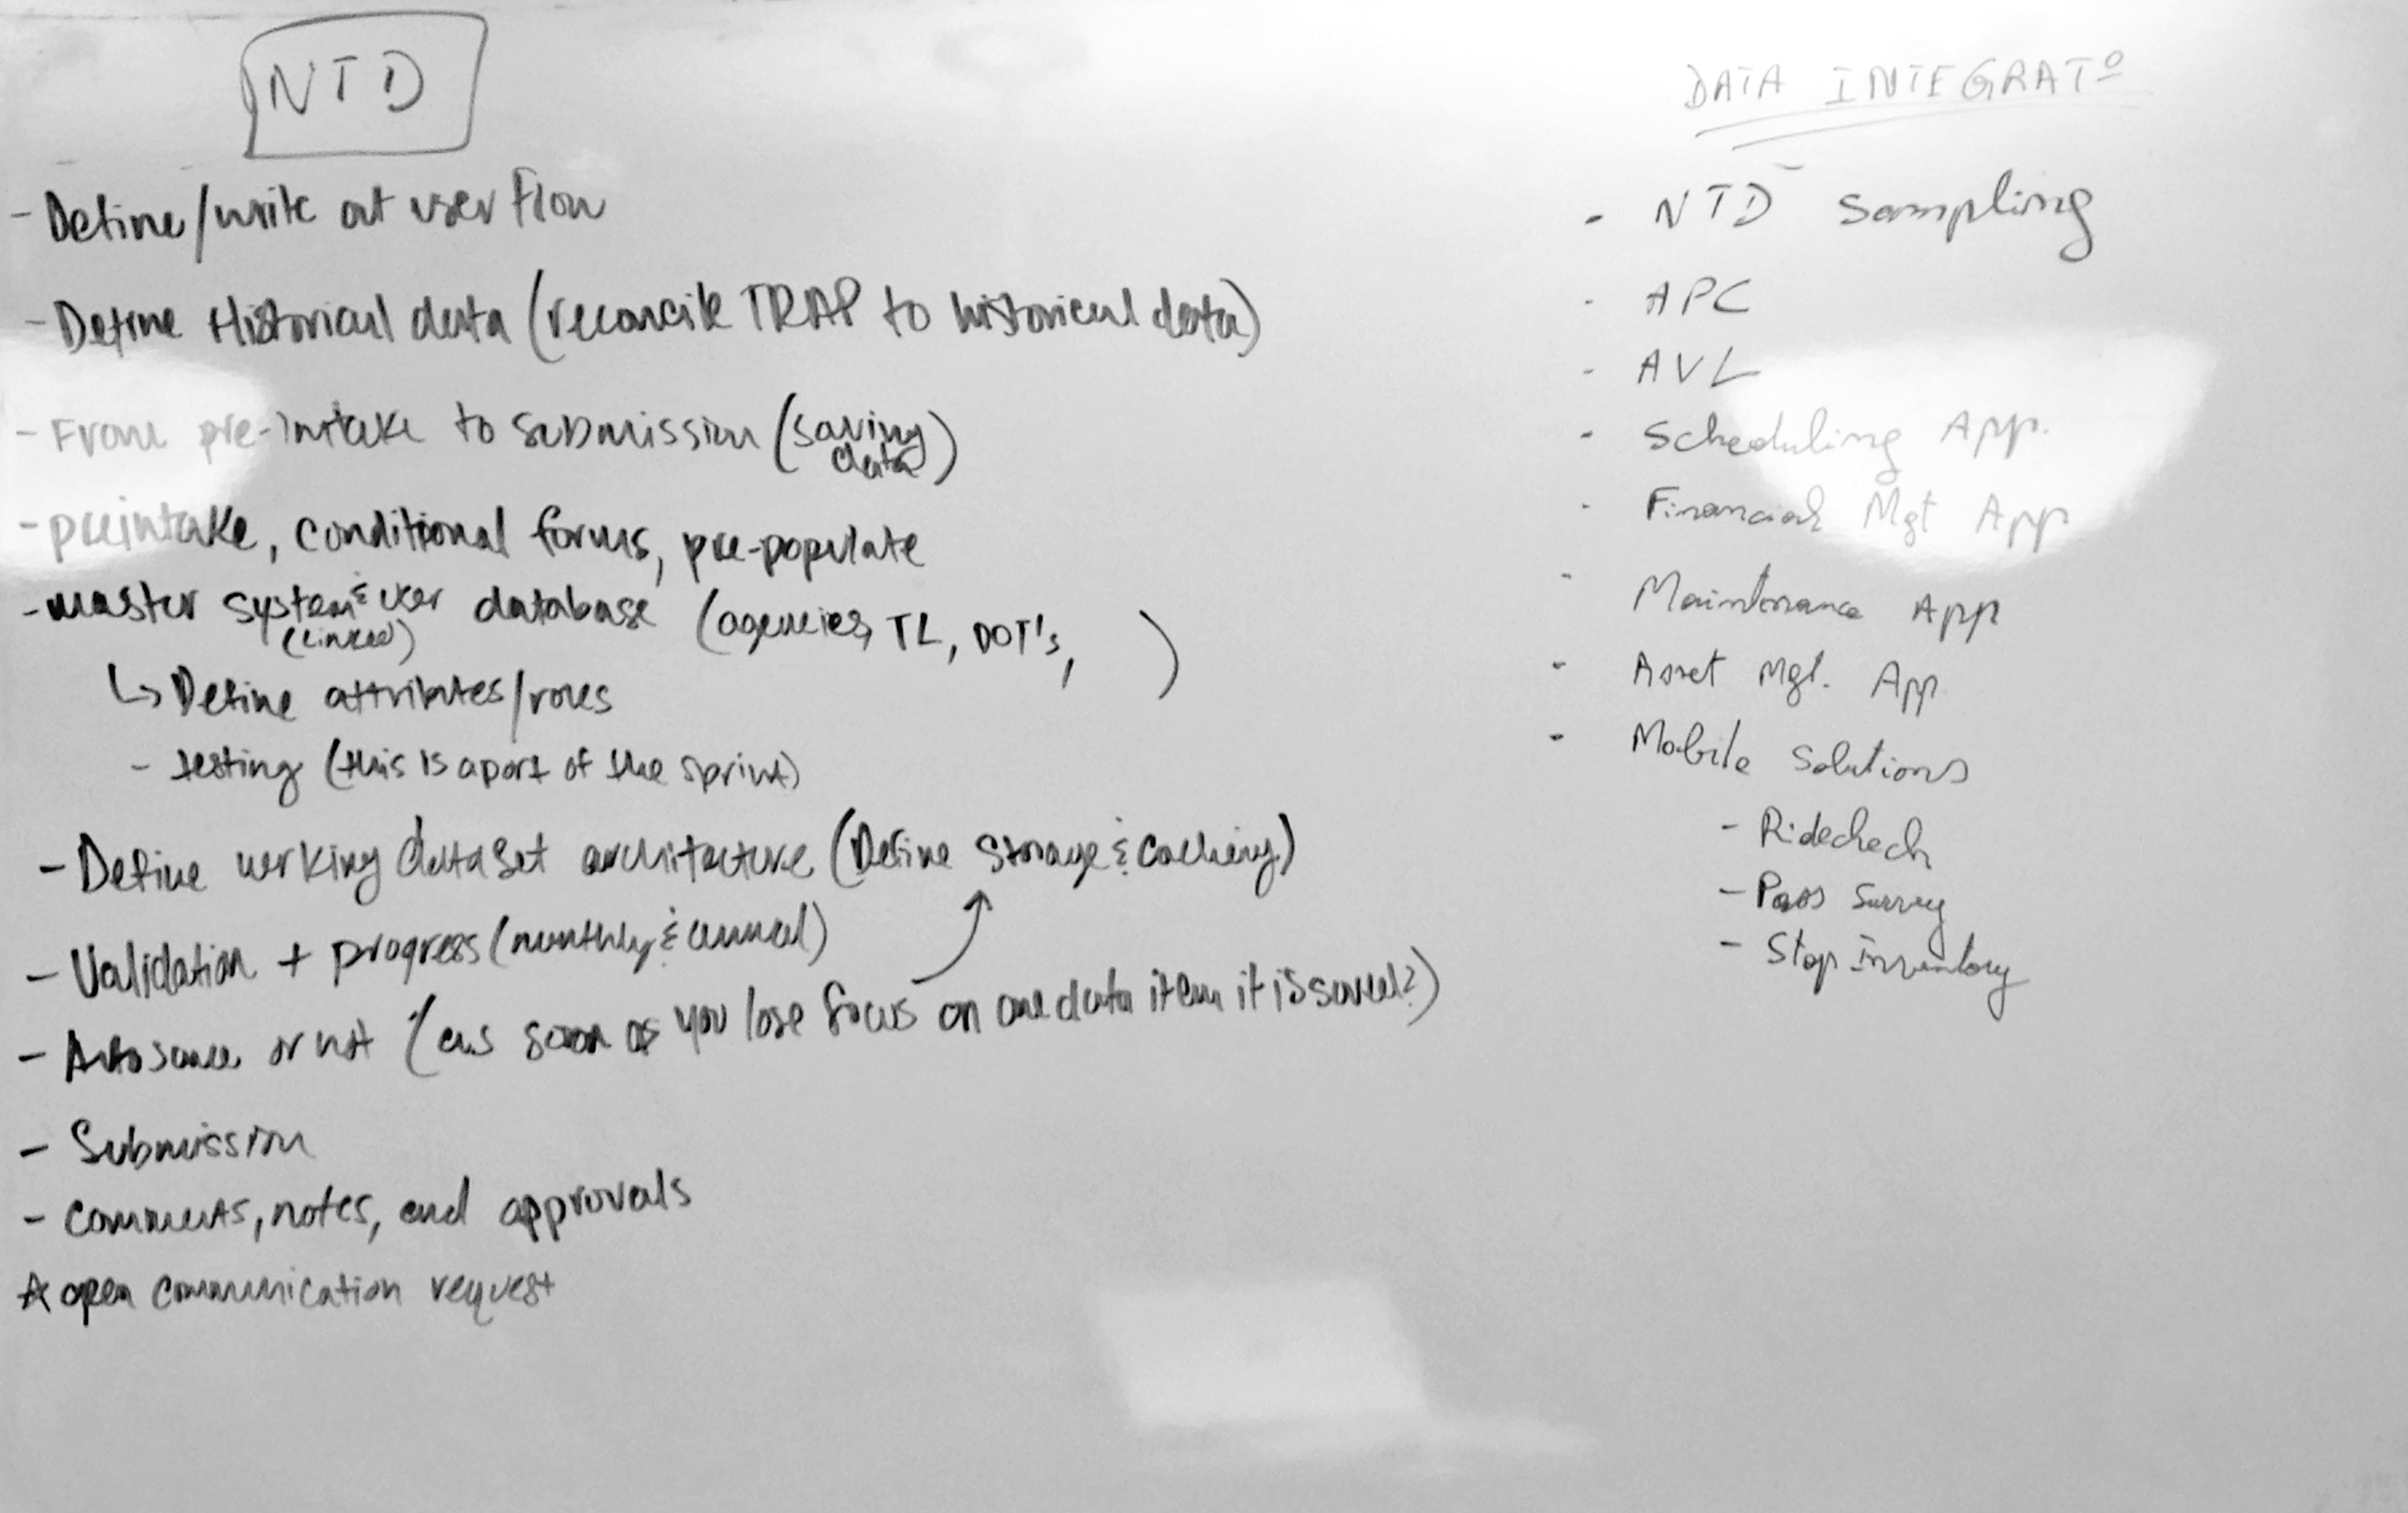 NTD
- Define/write out user flow
- Define Historical data (reconcile TRAP to historical data)
- From pre-intake to submission (saving data)
- preintake, conditional forms, pre-populate
- master system & user database (agencies, TL, DOT's, )
(linked)
↳ Define attributes/roles
- testing (this is a part of the sprint)
- Define working dataset architecture (Define Storage & Caching)
- Validation + progress (monthly & annual)
- Autosave or not (as soon as you lose focus on one data item it is saved?)
- Submission
- Comments, notes, and approvals
☆ open communication request
DATA INTEGRATº
- NTD Sampling
- APC
- AVL
- Scheduling App.
- Financial Mgt App
- Maintenance App
- Asset Mgt. App.
- Mobile Solutions
- Ridecheck
- Pass Survey
- Stop Inventory